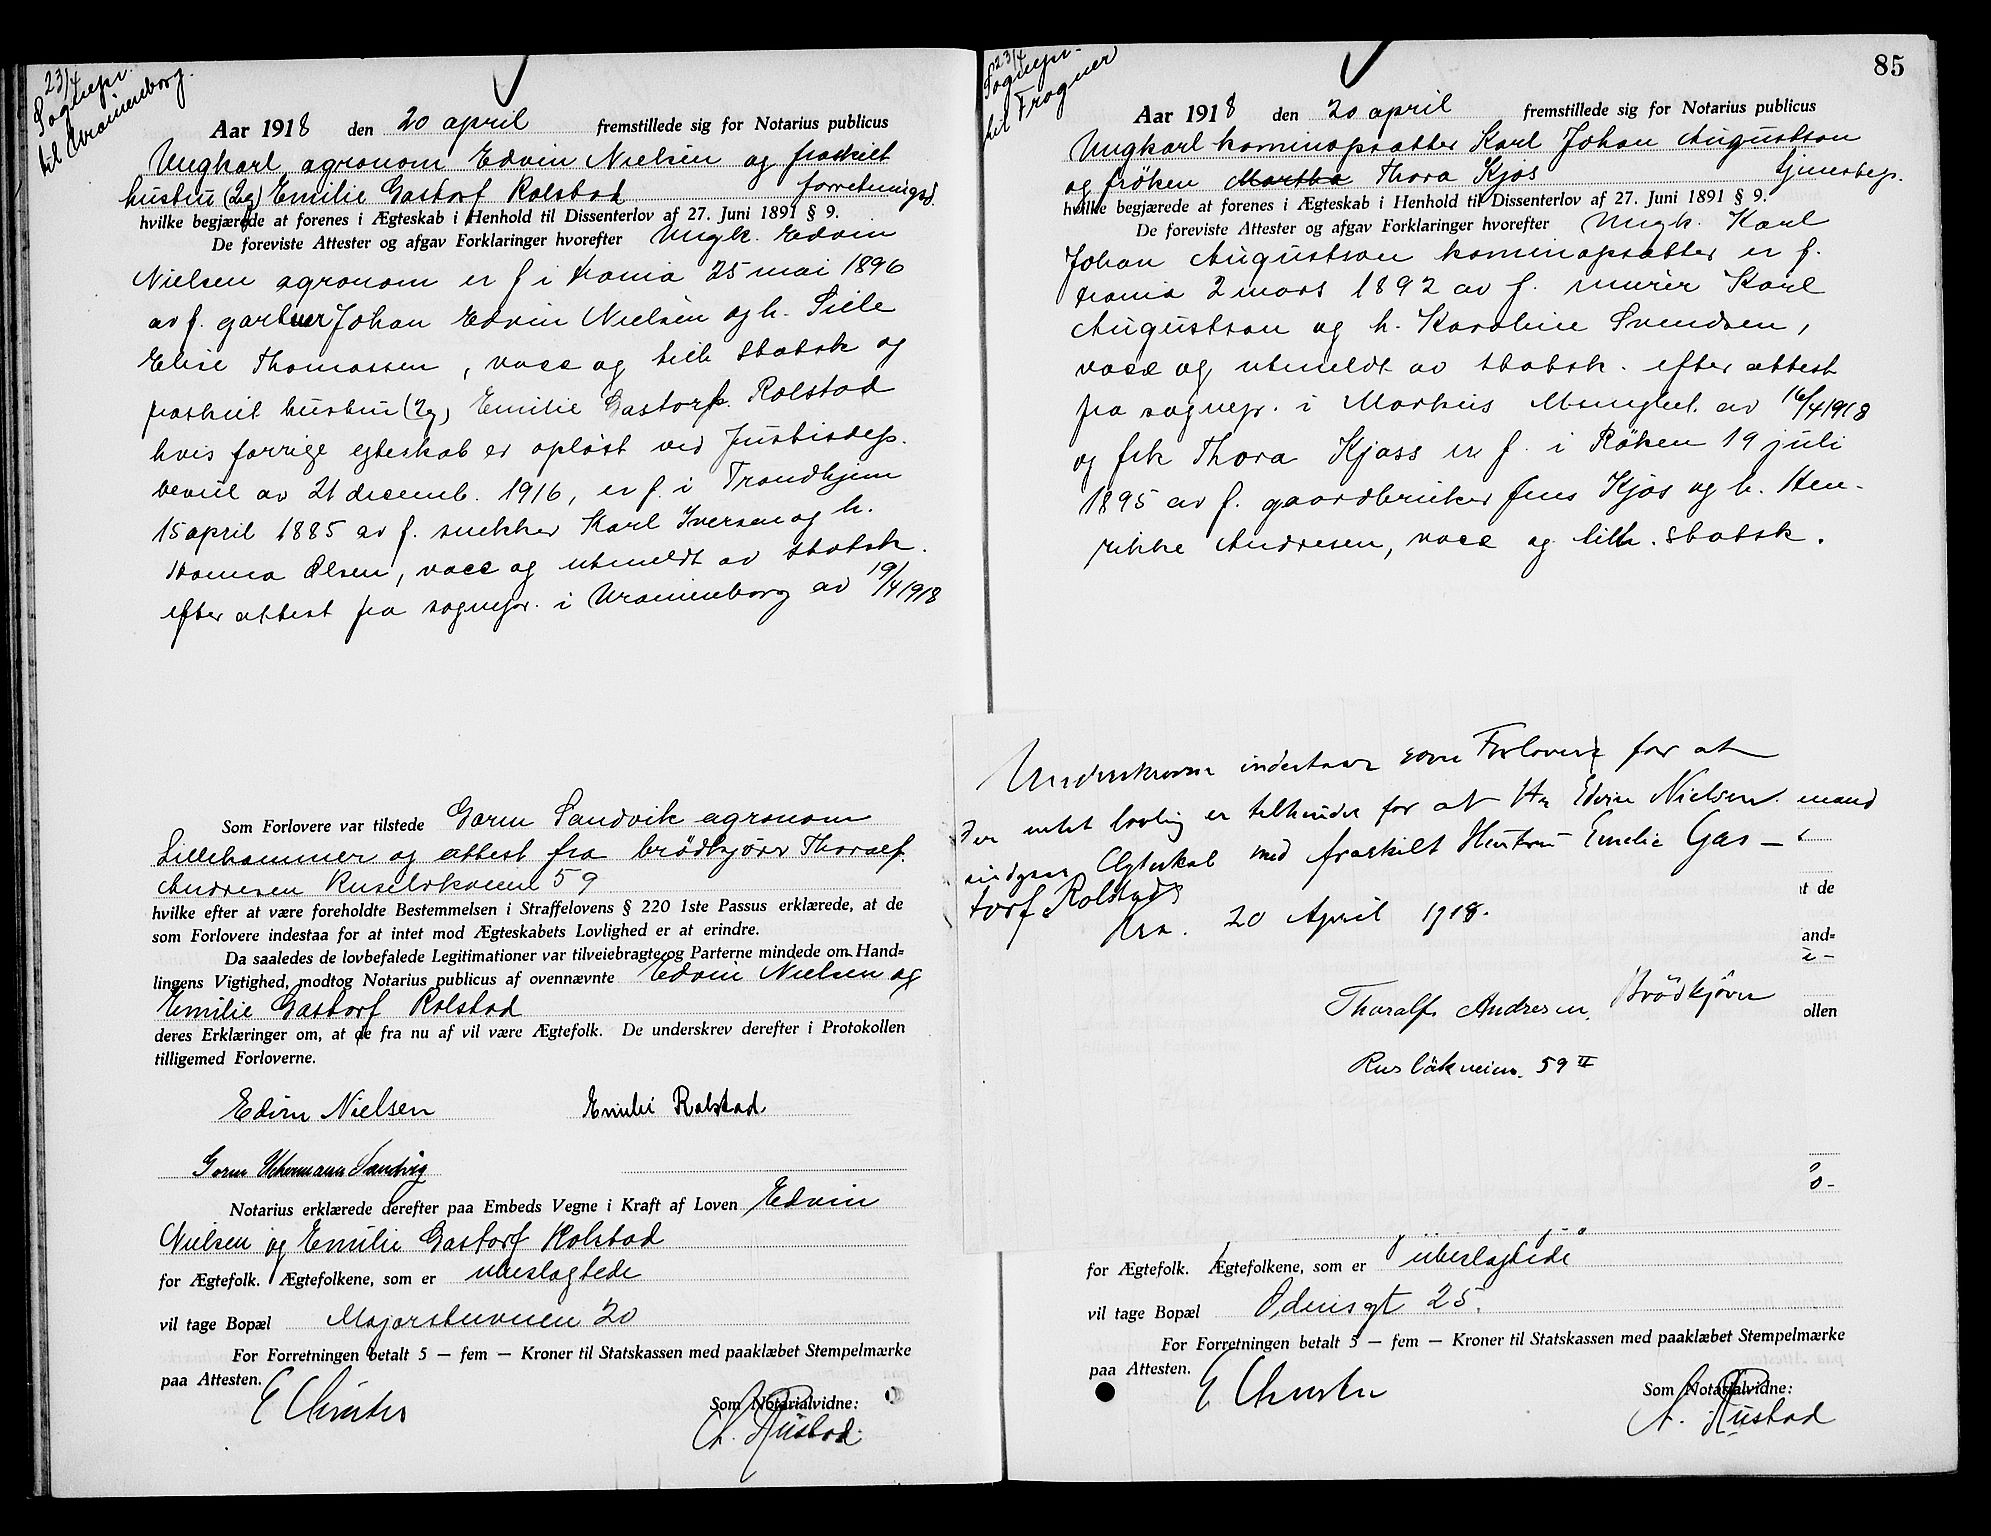 23/4
Sognepr.
til Uranienborg.
Aar 1918 den 20 april fremstillede sig for Notarius publicus
Ungkarl agronom Edvin Nielsen og fraskilt
hustru (2g) Emilie Gastorf Rolstad forretningsd.
hvilke begjærede at forenes i Ægteskab i Henhold til Dissenterlov af 27. Juni 1891 § 9.
De foreviste Attester og afgav Forklaringer hvorefter Ungk. Edvin
Nielsen agronom er f i Krania 25 mai 1896
av f. gartner Johan Edvin Nielsen og h.
Elise Thomassen, vacc og tilh statsk og
fraskilt hustru (2g) Emilie Gastorf Rolstad
hvis forrige egteskab er opløst ved Justisdep.
bevil av 21 decemb. 1916, er f. i Trondhjem
15 april 1885 av f. snekker Karl Iversen og h.
Hanna Olsen, vacc og utmeldt av statsk.
efter attest fra sognepr. i Uranienborg av 19/4 1918
Som Forlovere var tilstede Gorm Sandvik agronom
Lillehammer og attest fra brödkjörer Thoralf
Andresen Ruselökveien 59
hvilke efter at være foreholdte Bestemmelsen i Straffelovens § 220 1ste Passus erklærede, at de
som Forlovere indestaa for at intet mod Ægteskabets Lovlighed er at erindre.
Da saaledes de lovbefalede Legitimationer var tilveiebragte og Parterne mindede om Hand-
lingens Vigtighed, modtog Notarius publicus af ovennævnte Edvin Nielsen og
Emilie Gastorf Rolstad
deres Erklæringer om, at de fra nu af vil være Ægtefolk. De underskrev derefter i Protokollen
tilligemed Forloverne.
Edvin Nielsen Emilie Rolstad
Gorm Uchermann Sandvig
Notarius erklærede derefter paa Embeds Vegne i Kraft af Loven Edvin
Nielsen og Emilie Gastorf Rolstad
for Ægtefolk. Ægtefolkene, som er ubeslagtede
vil tage Bopæl Majorstuveien 20
For Forretningen betalt 5 — fem — Kroner til Statskassen med paaklæbet Stempelmærke
paa Attesten.
E Christie
Som Notarialvidne:
A. Rustad
85
23/4
Sognepr.
til Frogner
Aar 1918 den 20 april fremstillede sig for Notarius publicus
Ungkarl kaminopsætter Karl Johan Augustson
og fröken Martha Thora Kjos tjenestep.
hvilke begjærede at forenes i Ægteskab i Henhold til Dissenterlov af 27. Juni 1891 § 9.
De foreviste Attester og afgav Forklaringer hvorefter Ungk. Karl
Johan Augustson kaminopsætter er f.
Krania 2 mars 1892 av f. murer Karl
Augustson og h. Karoline Svendsen,
vacc og utmeldt av statsk. efter attest
fra sognepr. i Markus Menighet av 16/4 1918
og frk Thora Kjoss er f. i Röken 19 juli
1895 av f. gaardbruker Jens Kjos og h. Hen-
rikke Andresen, vacc og tilh. statsk.
Underskrevne indestaar som Forlover for at
der intet lovlig er tilhinder for at Hr Edvin Nielsen
indgaar Ægteskab med fraskilt Hustru Emilie Gas-
torf Rolstad
Kra. 20 April 1918.
Thoralf Andresen, Brödkjörer
Rusløkveien. 59 II
mand
t de
and-
ollen
for Ægtefolk. Ægtefolkene, som er ubeslagtede
vil tage Bopæl Odinsgt 25.
For Forretningen betalt 5 — fem — Kroner til Statskassen med paaklæbet Stempelmærke
paa Attesten.
E Christie
Som Notarialvidne:
A. Rustad